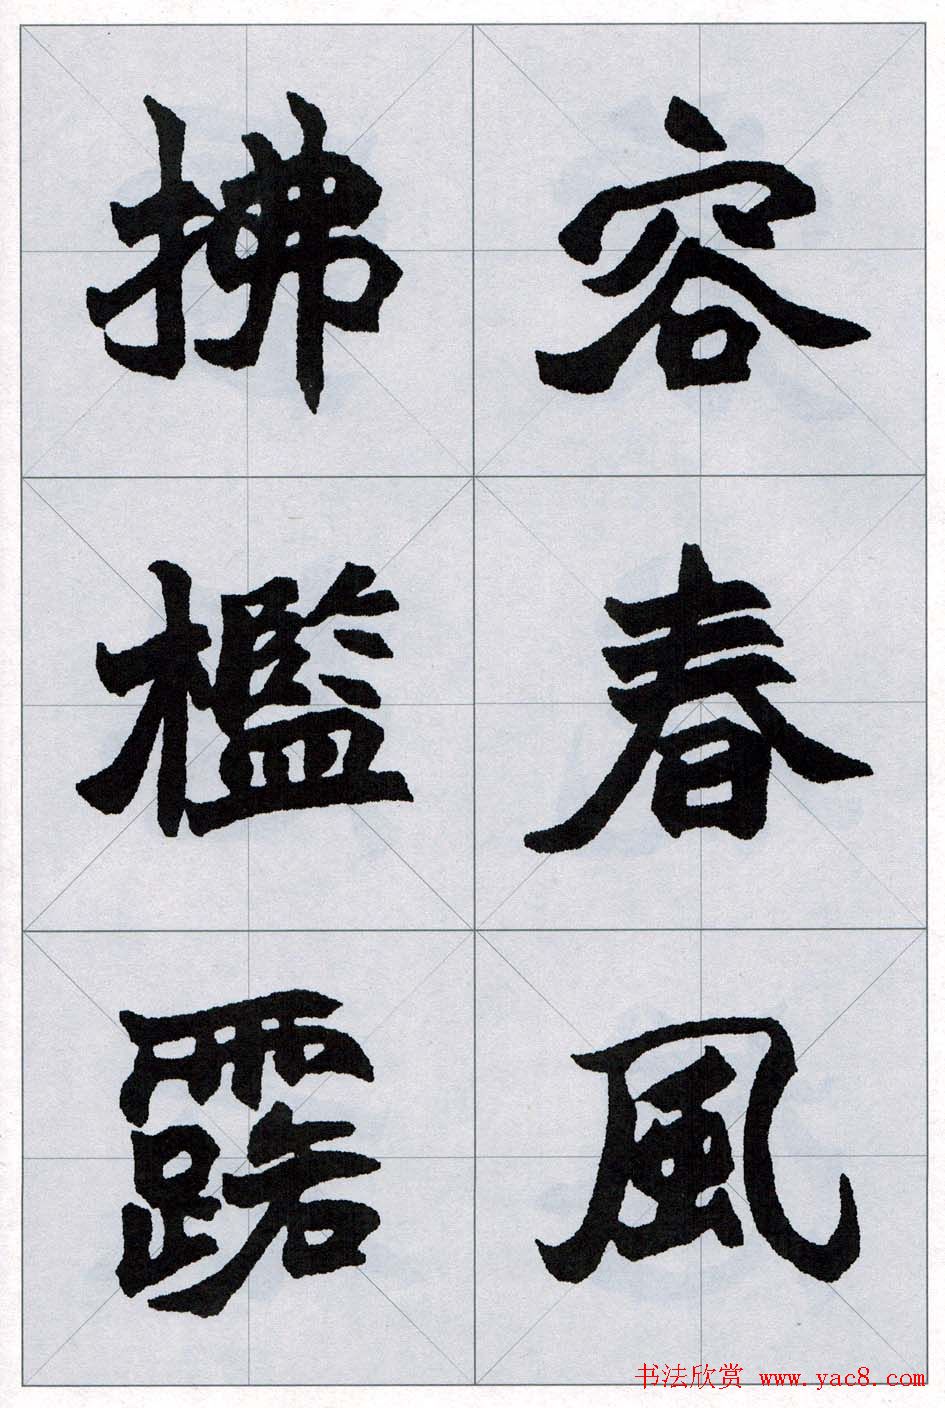 容春風
拂檻露
书法欣赏 www.yac8.com